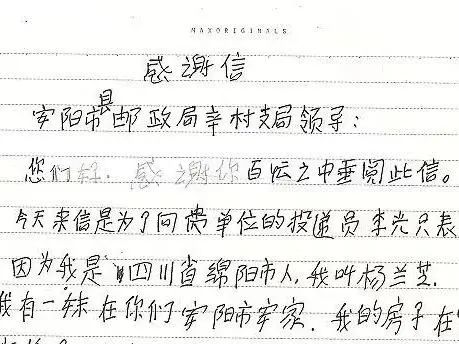 MAXORIGINALS
感谢信
安阳市县邮政局辛村支局领导：
您们好．感谢你百忙之中垂阅此信。
今天来信是为了向贵单位的投递员李光只表
因为我是四川省绵阳市人，我叫杨兰芝．
我有一妹在你们安阳市安家．我的房子在